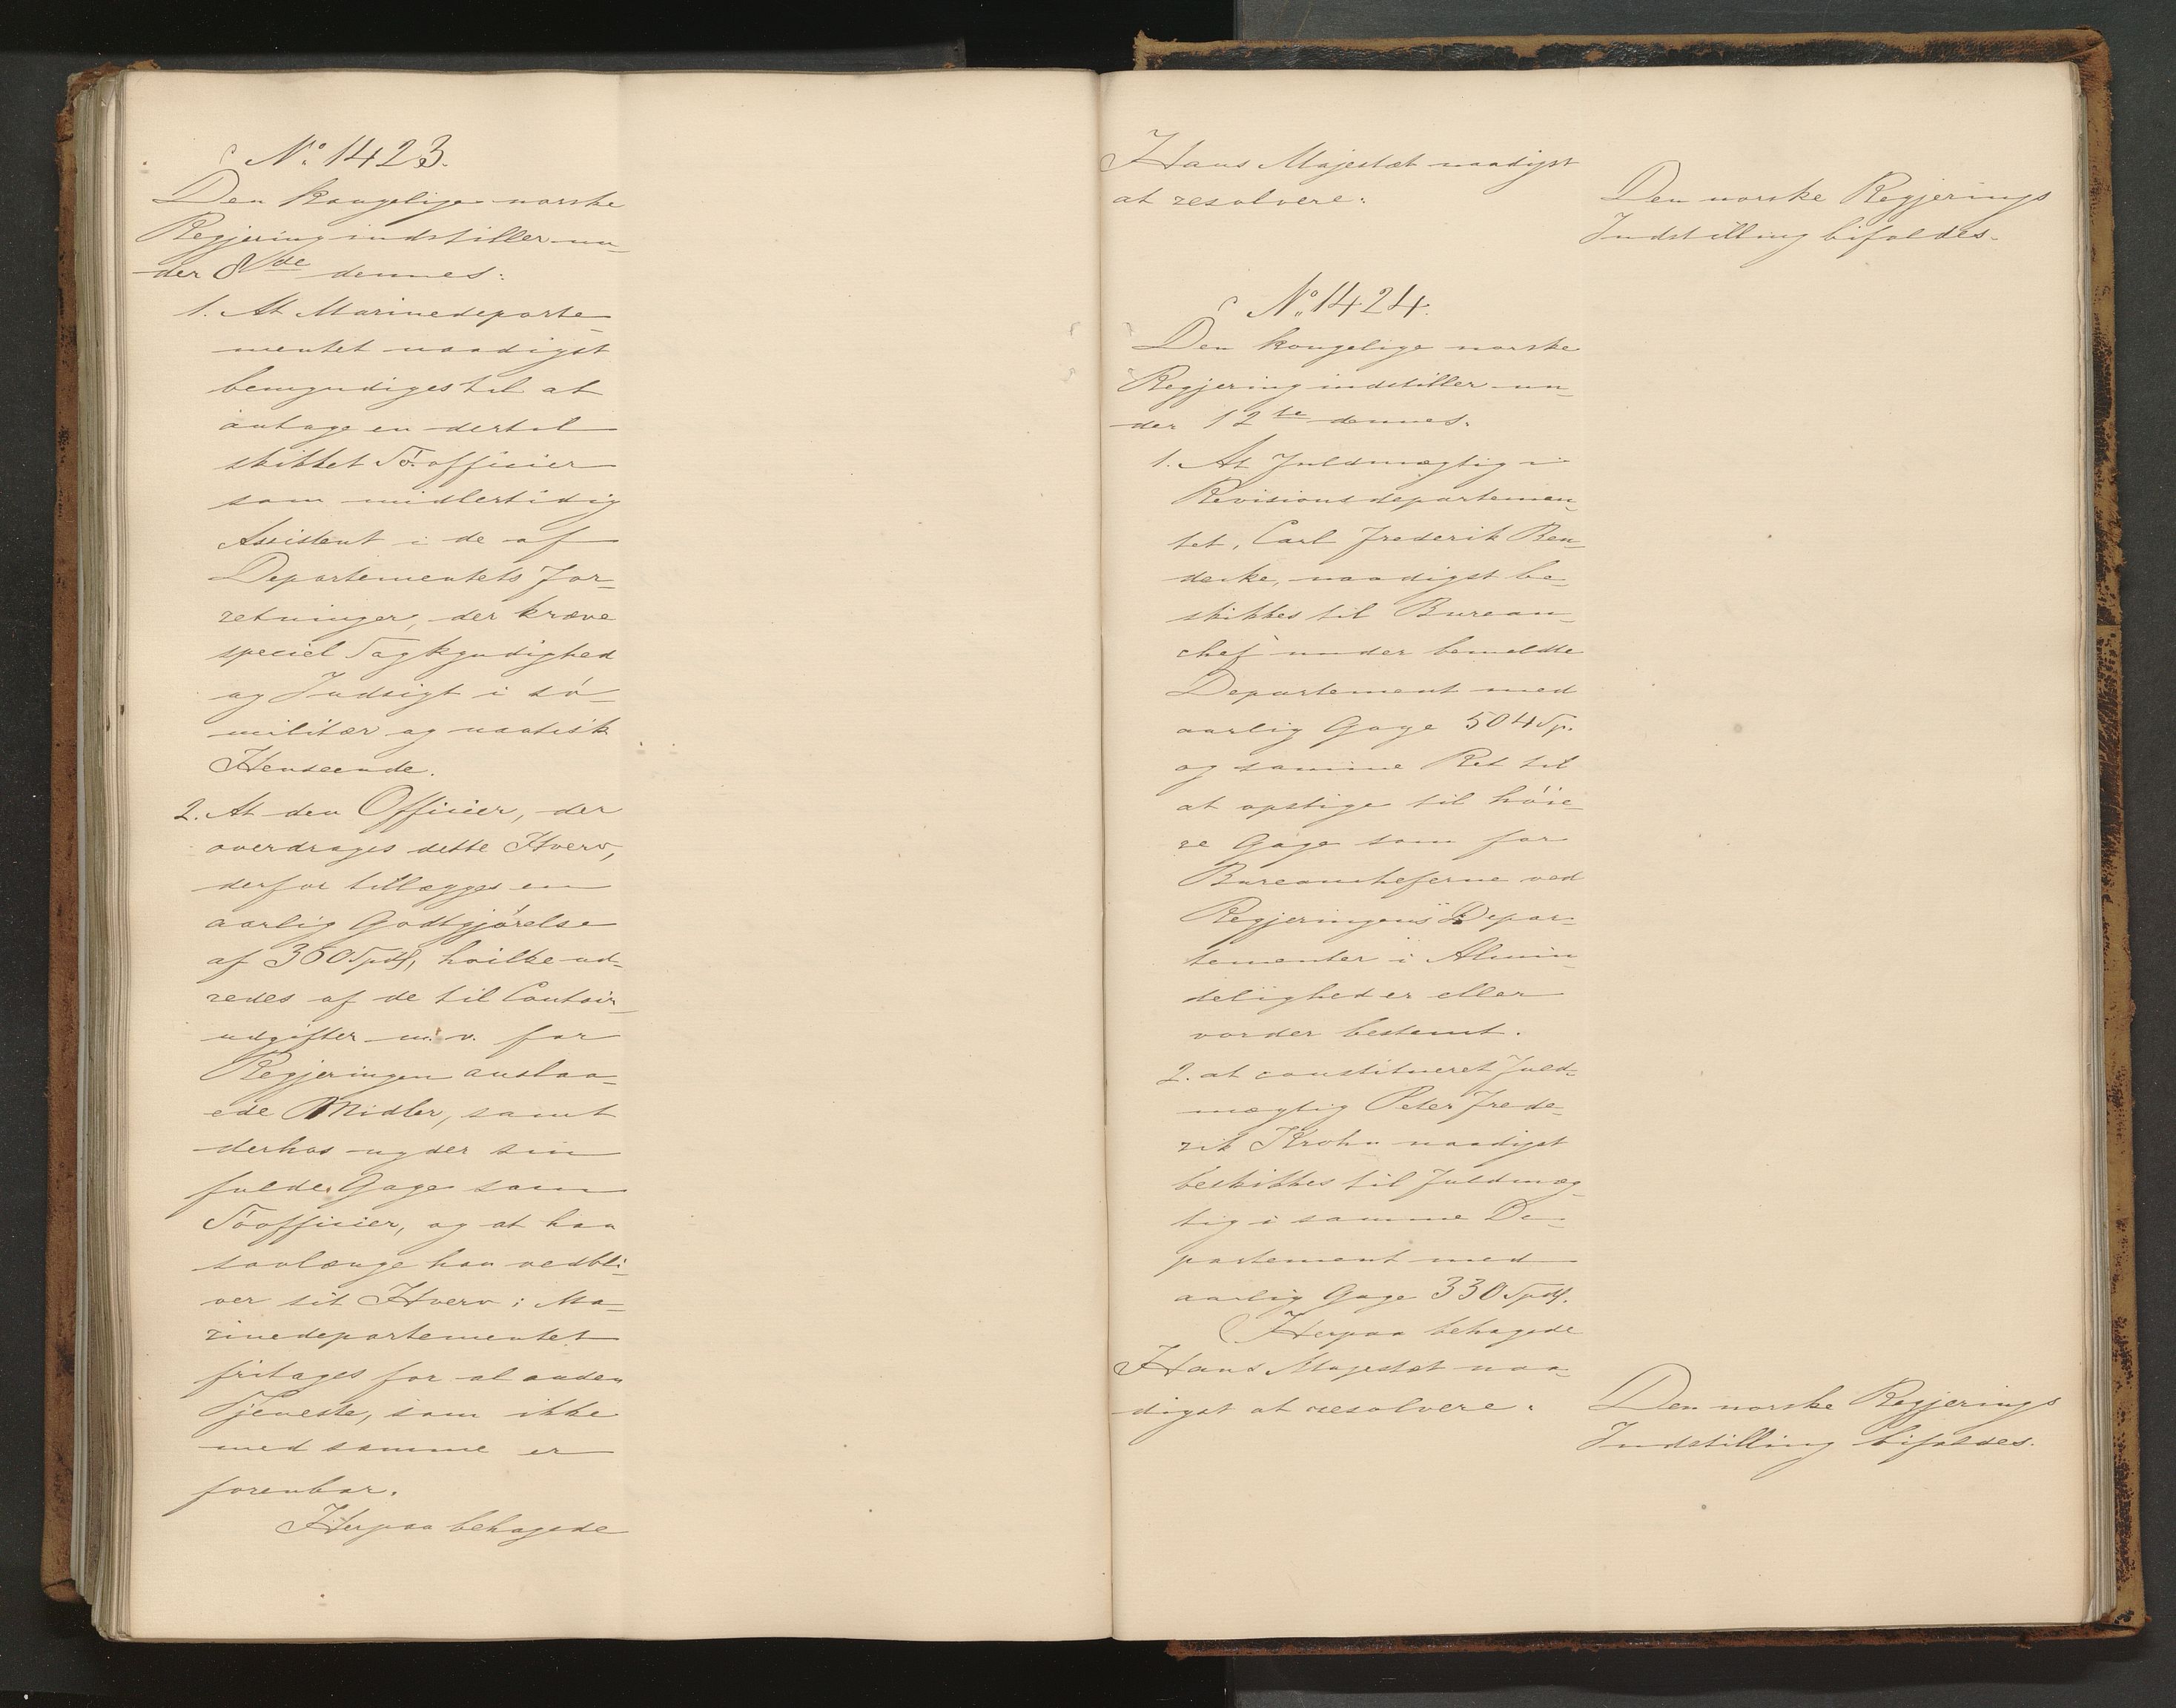 No. 1423.
Den kongelige norske
Regjering indstiller un-
der 8de dennes:
1. At Marinedeparte-
mentet naadigst
bemyndiges til at
antage en dertil
skikket Söofficier
som midlertidig
Assistent i de af
Departementets For-
retninger, der kræve
speciel Sagkyndighed
og Indsigt i sö-
militær og nautisk
Henseende.
2. At den Officier, der
overdrages dette Hverv,
derfor tillægges en
aarlig Godtgjörelse
af 350 Spdlr, hvilke ud-
redes af de til Contoir-
udgifter m. v. for
Regjeringen anslaa-
ede Midler, samt
derhos nyder sin
fulde Gage som
Söofficier, og at han
saalænge han vedbli-
ver sit Hverv i Ma-
rinedepartementet
fritages for al anden
Tjeneste, som ikke
med samme er
forenbar.
Herpaa behagede
Hans Majestæt naadigst
at resolvere:
Den norske Regjerings
Indstilling bifaldes.
No. 1424.
Den kongelige norske
Regjering indstiller un-
der 12te dennes.
1. At Fuldmægtig i
Revisionsdepartemen-
tet, Carl Frederik Ben-
deke, naadigst be-
skikkes til Bureau-
chef under bemeldte
Departement med
aarlig Gage 504 Sp.
og samme Ret til
at opstige til höie-
re Gage som for
Bureaucheferne ved
Regjeringens Depar-
tementer i Almin-
delighed er eller
vorder bestemt.
2. at constitueret Fuld-
mægtig Peter Frede-
rik Krohn naadigst
beskikkes til Fuldmæg-
tig i samme De-
partement med
aarlig Gage 330 Spdlr.
Herpaa behagede
Hans Majestæt naa-
digst at resolvere:
Den norske Regjerings
Indstilling bifaldes.